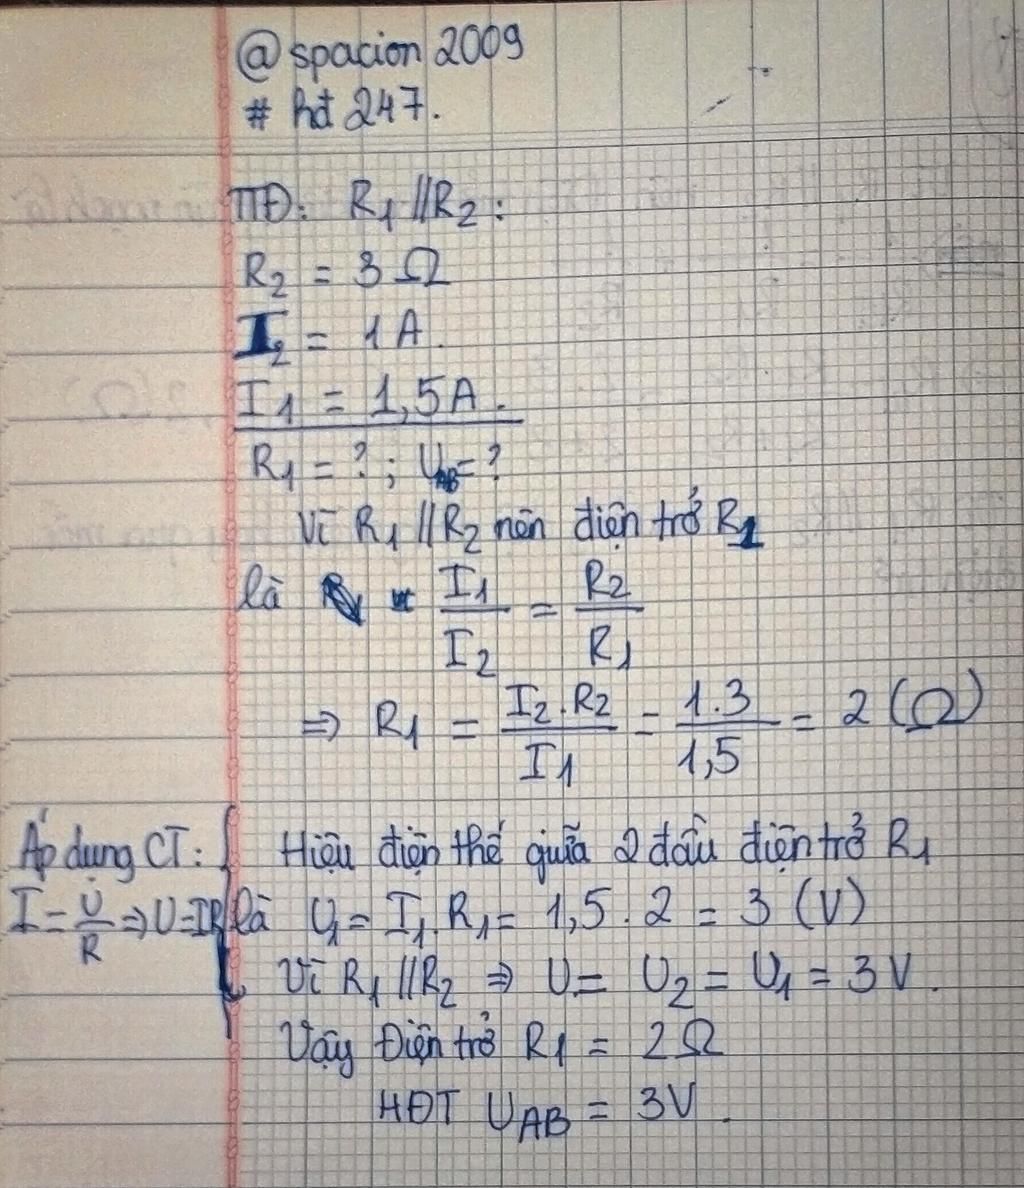 @ spacion 2009
# hđ 247.
TTĐ: R1 // R2 :
R2 = 3 Ω
I2 = 1 A.
I1 = 1,5 A.
R1 = ? ; UAB = ?
Vì R1 // R2 nên điện trở R1
là I1/I2 = R2/R1
⇒ R1 = I2.R2/I1 = 1.3/1,5 = 2 (Ω)
Áp dụng CT:
I = U/R ⇒ U=IR
Hiệu điện thế giữa 2 đầu điện trở R1
là U1 = I1.R1 = 1,5 . 2 = 3 (V)
Vì R1 // R2 ⇒ U = U2 = U1 = 3 V.
Vậy Điện trở R1 = 2Ω
HĐT UAB = 3V.